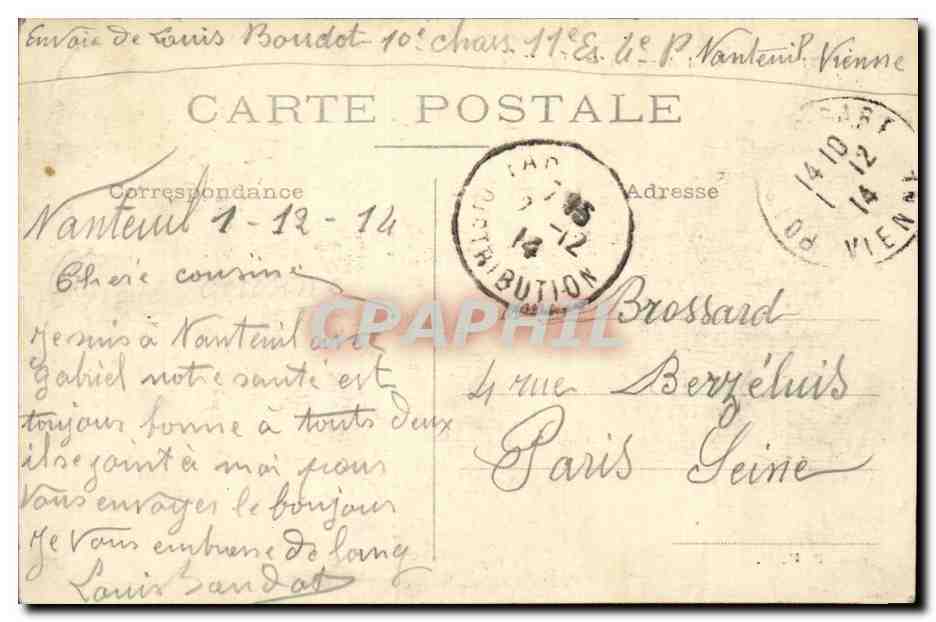 Envoie de Louis Boudot 10e chass. 11e Es. 4e P. Nanteuil Vienne
CARTE POSTALE
Correspondance
Adresse
Nanteuil 1-12-14
Chere cousine
Je suis à Nanteuil avec
Gabriel notre santé est
toujour bonne à touts deux
il se joint à moi pour
Vous envoyer le bonjour
Je Vous embrasse de loing
Louis Boudot
PARIS
15
2-12
14
DISTRIBUTION
14 10
1-12
14
VIENNE
Brossard
4 rue Berzéluis
Paris Seine
CPAPHIL